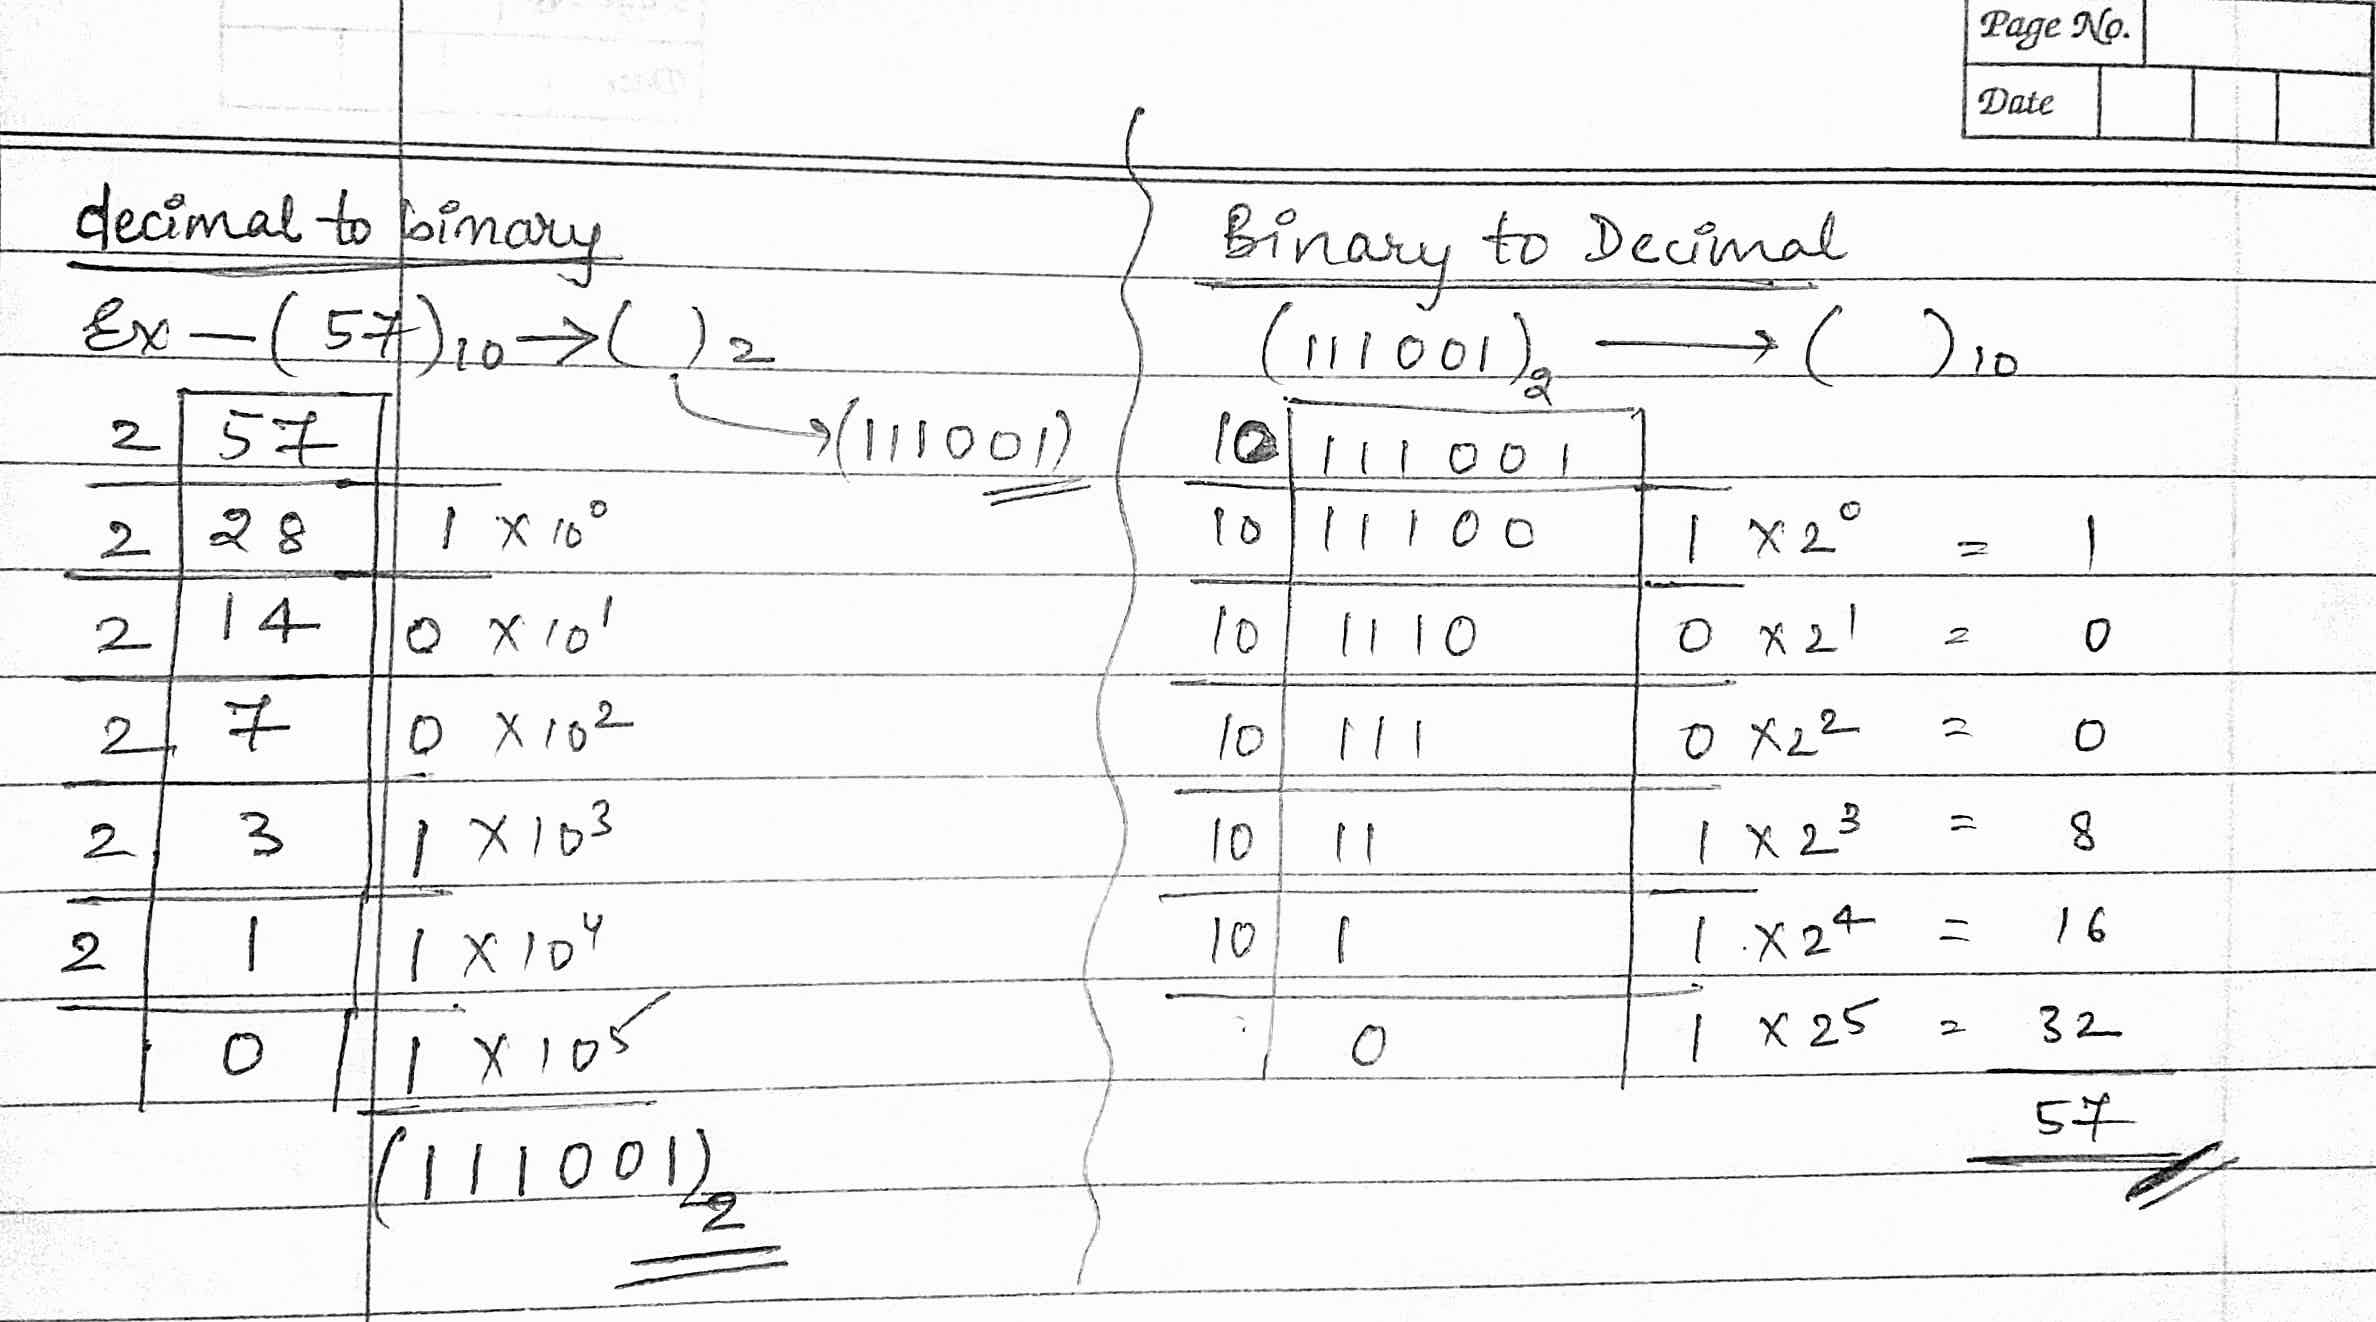 Page No.
Date
decimal to binary
Ex — (57)₁₀ → ( )₂
→ (111001)
2 57
2 28 1 × 10⁰
2 14 0 × 10¹
2 7 0 × 10²
2 3 1 × 10³
2 1 1 × 10⁴
0 1 × 10⁵
(111001)₂
Binary to Decimal
(111001)₂ → ( )₁₀
10 111001
10 11100 1 × 2⁰ = 1
10 1110 0 × 2¹ = 0
10 111 0 × 2² = 0
10 11 1 × 2³ = 8
10 1 1 × 2⁴ = 16
0 1 × 2⁵ = 32
57